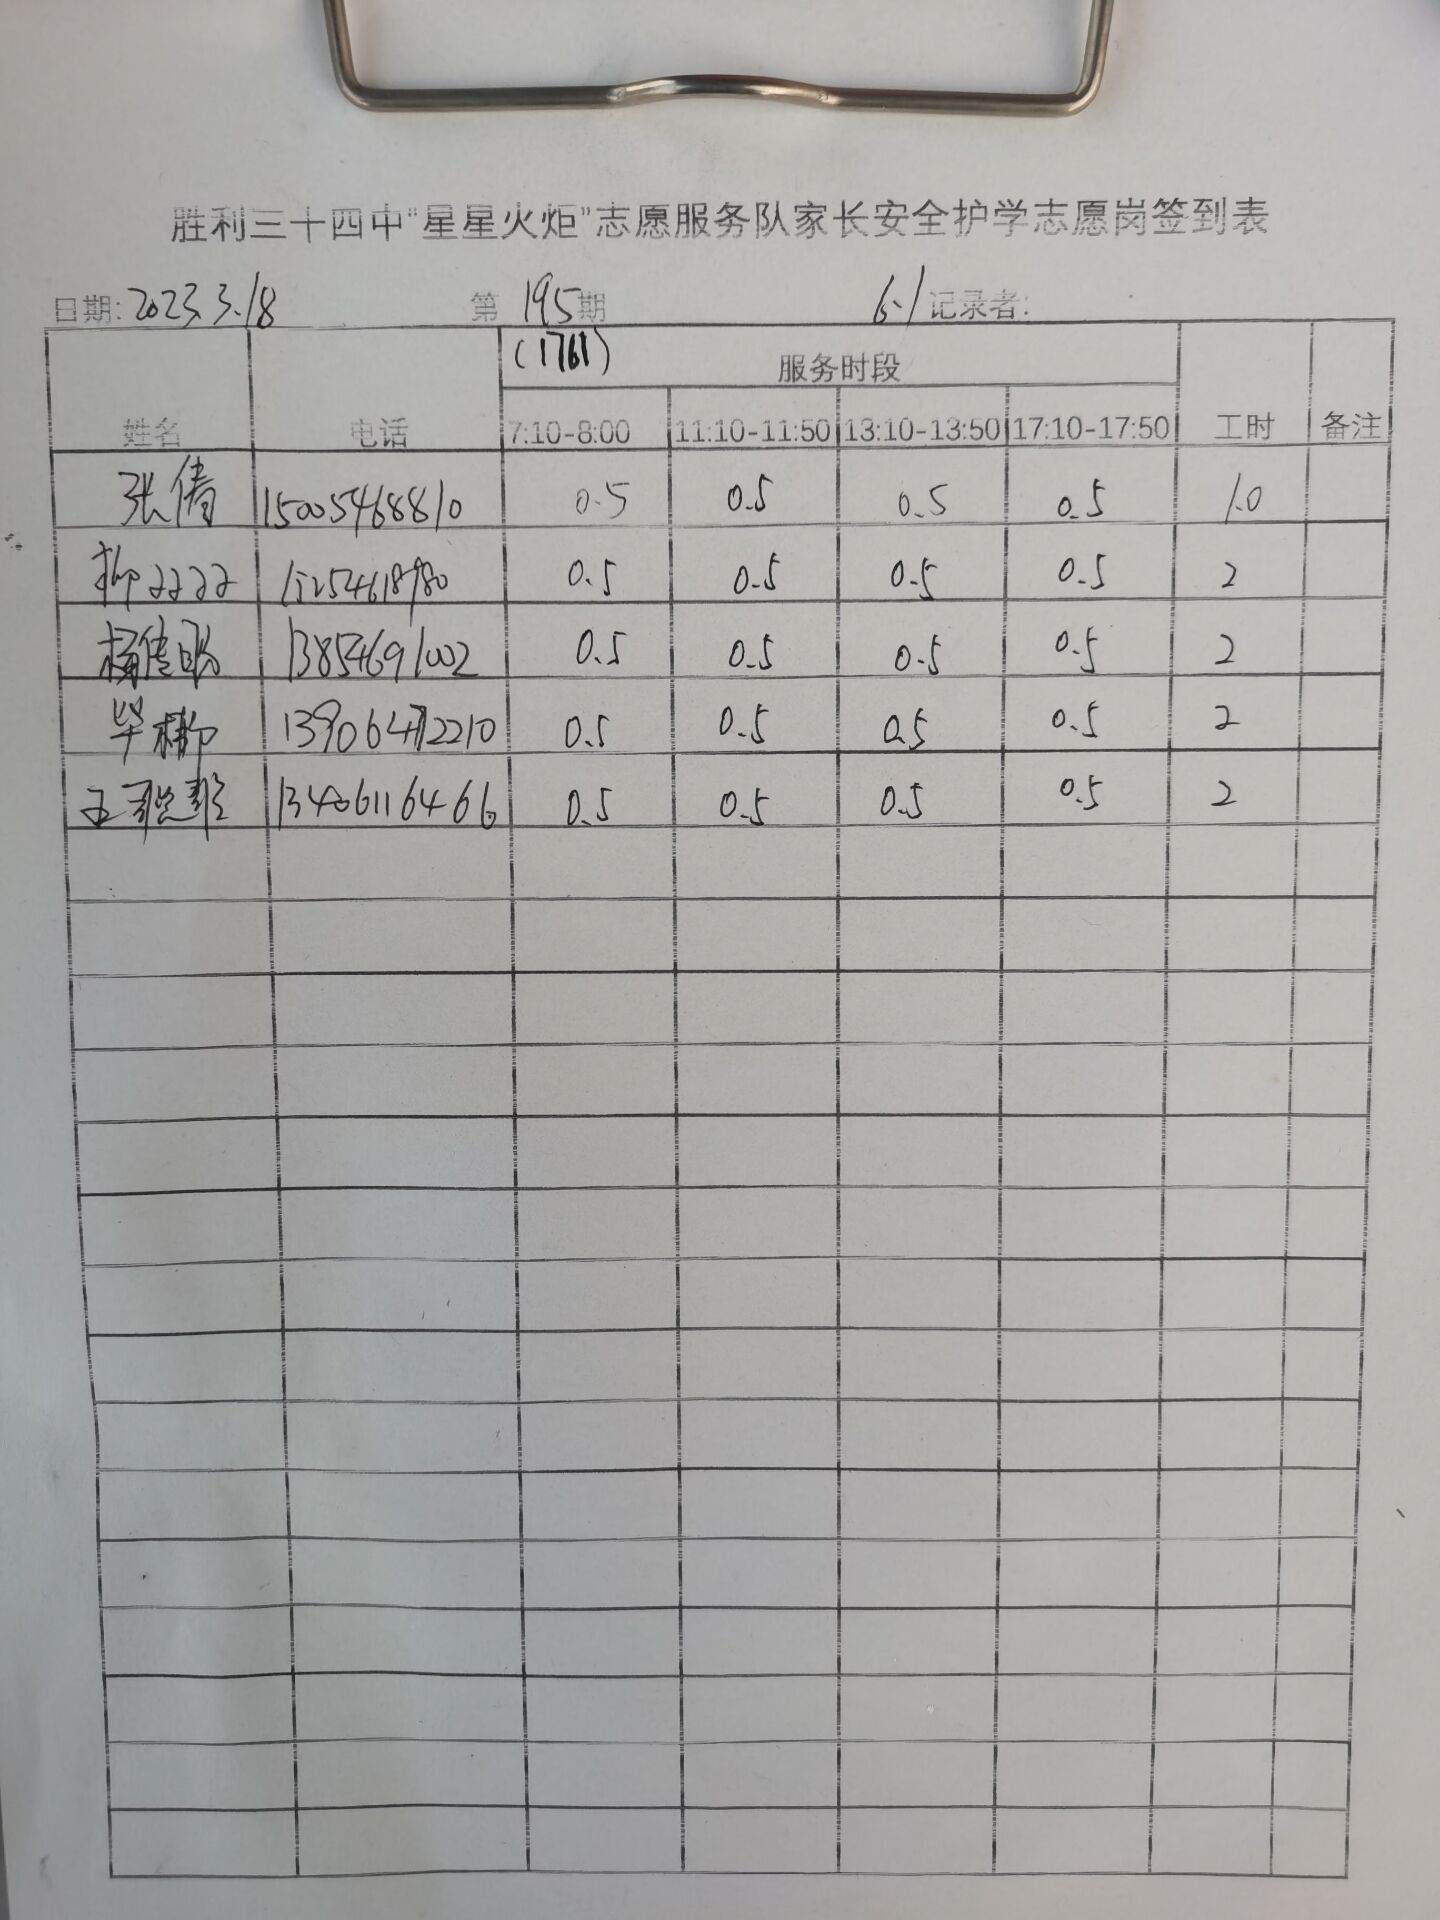 胜利三十四中“星星火炬”志愿服务队家长安全护学志愿岗签到表
日期: 2023.3.18 第 195期 6.1 记录者:
(1761) 服务时段
姓名 电话 7:10-8:00 11:10-11:50 13:10-13:50 17:10-17:50 工时 备注
张倩 15005468810 0.5 0.5 0.5 0.5 1.0
柳 15254618980 0.5 0.5 0.5 0.5 2
杨佳聪 13854691002 0.5 0.5 0.5 0.5 2
毕柳 13906472210 0.5 0.5 0.5 0.5 2
王 13406116466 0.5 0.5 0.5 0.5 2